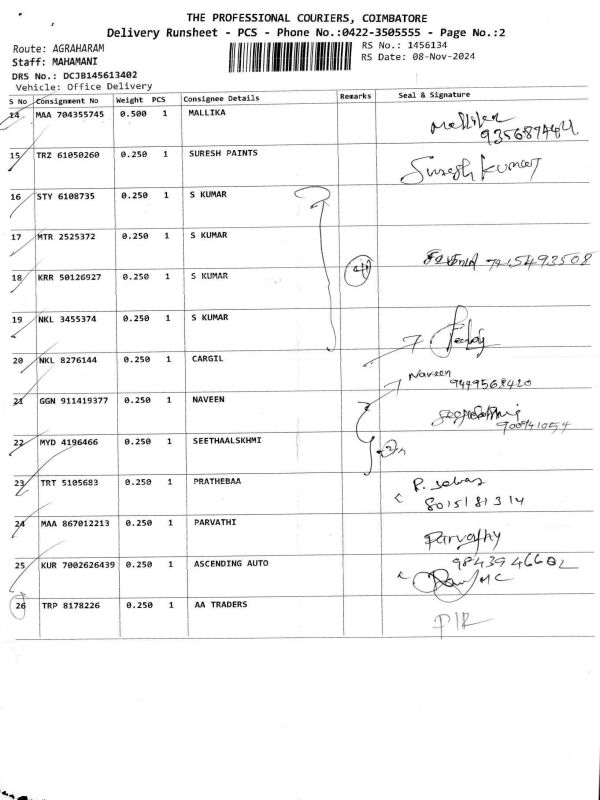 THE PROFESSIONAL COURIERS, COIMBATORE
Delivery Runsheet - PCS - Phone No.:0422-3505555 - Page No.:2
Route: AGRAHARAM
RS No.: 1456134
Staff: MAHAMANI
RS Date: 08-Nov-2024
DRS No.: DCJB145613402
Vehicle: Office Delivery
S No Consignment No Weight PCS Consignee Details Remarks Seal & Signature
14 MAA 704355745 0.500 1 MALLIKA
15 TRZ 61050260 0.250 1 SURESH PAINTS Suresh Kumar
16 STY 6108735 0.250 1 S KUMAR
17 MTR 2525372 0.250 1 S KUMAR
18 KRR 50126927 0.250 1 S KUMAR
19 NKL 3455374 0.250 1 S KUMAR
20 NKL 8276144 0.250 1 CARGIL
Naveen
9449568420
21 GGN 911419377 0.250 1 NAVEEN
22 MYD 4196466 0.250 1 SEETHAALSKHMI
23 TRT 5105683 0.250 1 PRATHEBAA
8015181314
24 MAA 867012213 0.250 1 PARVATHI Parvathy
9843946602
25 KUR 7002626439 0.250 1 ASCENDING AUTO
26 TRP 8178226 0.250 1 AA TRADERS